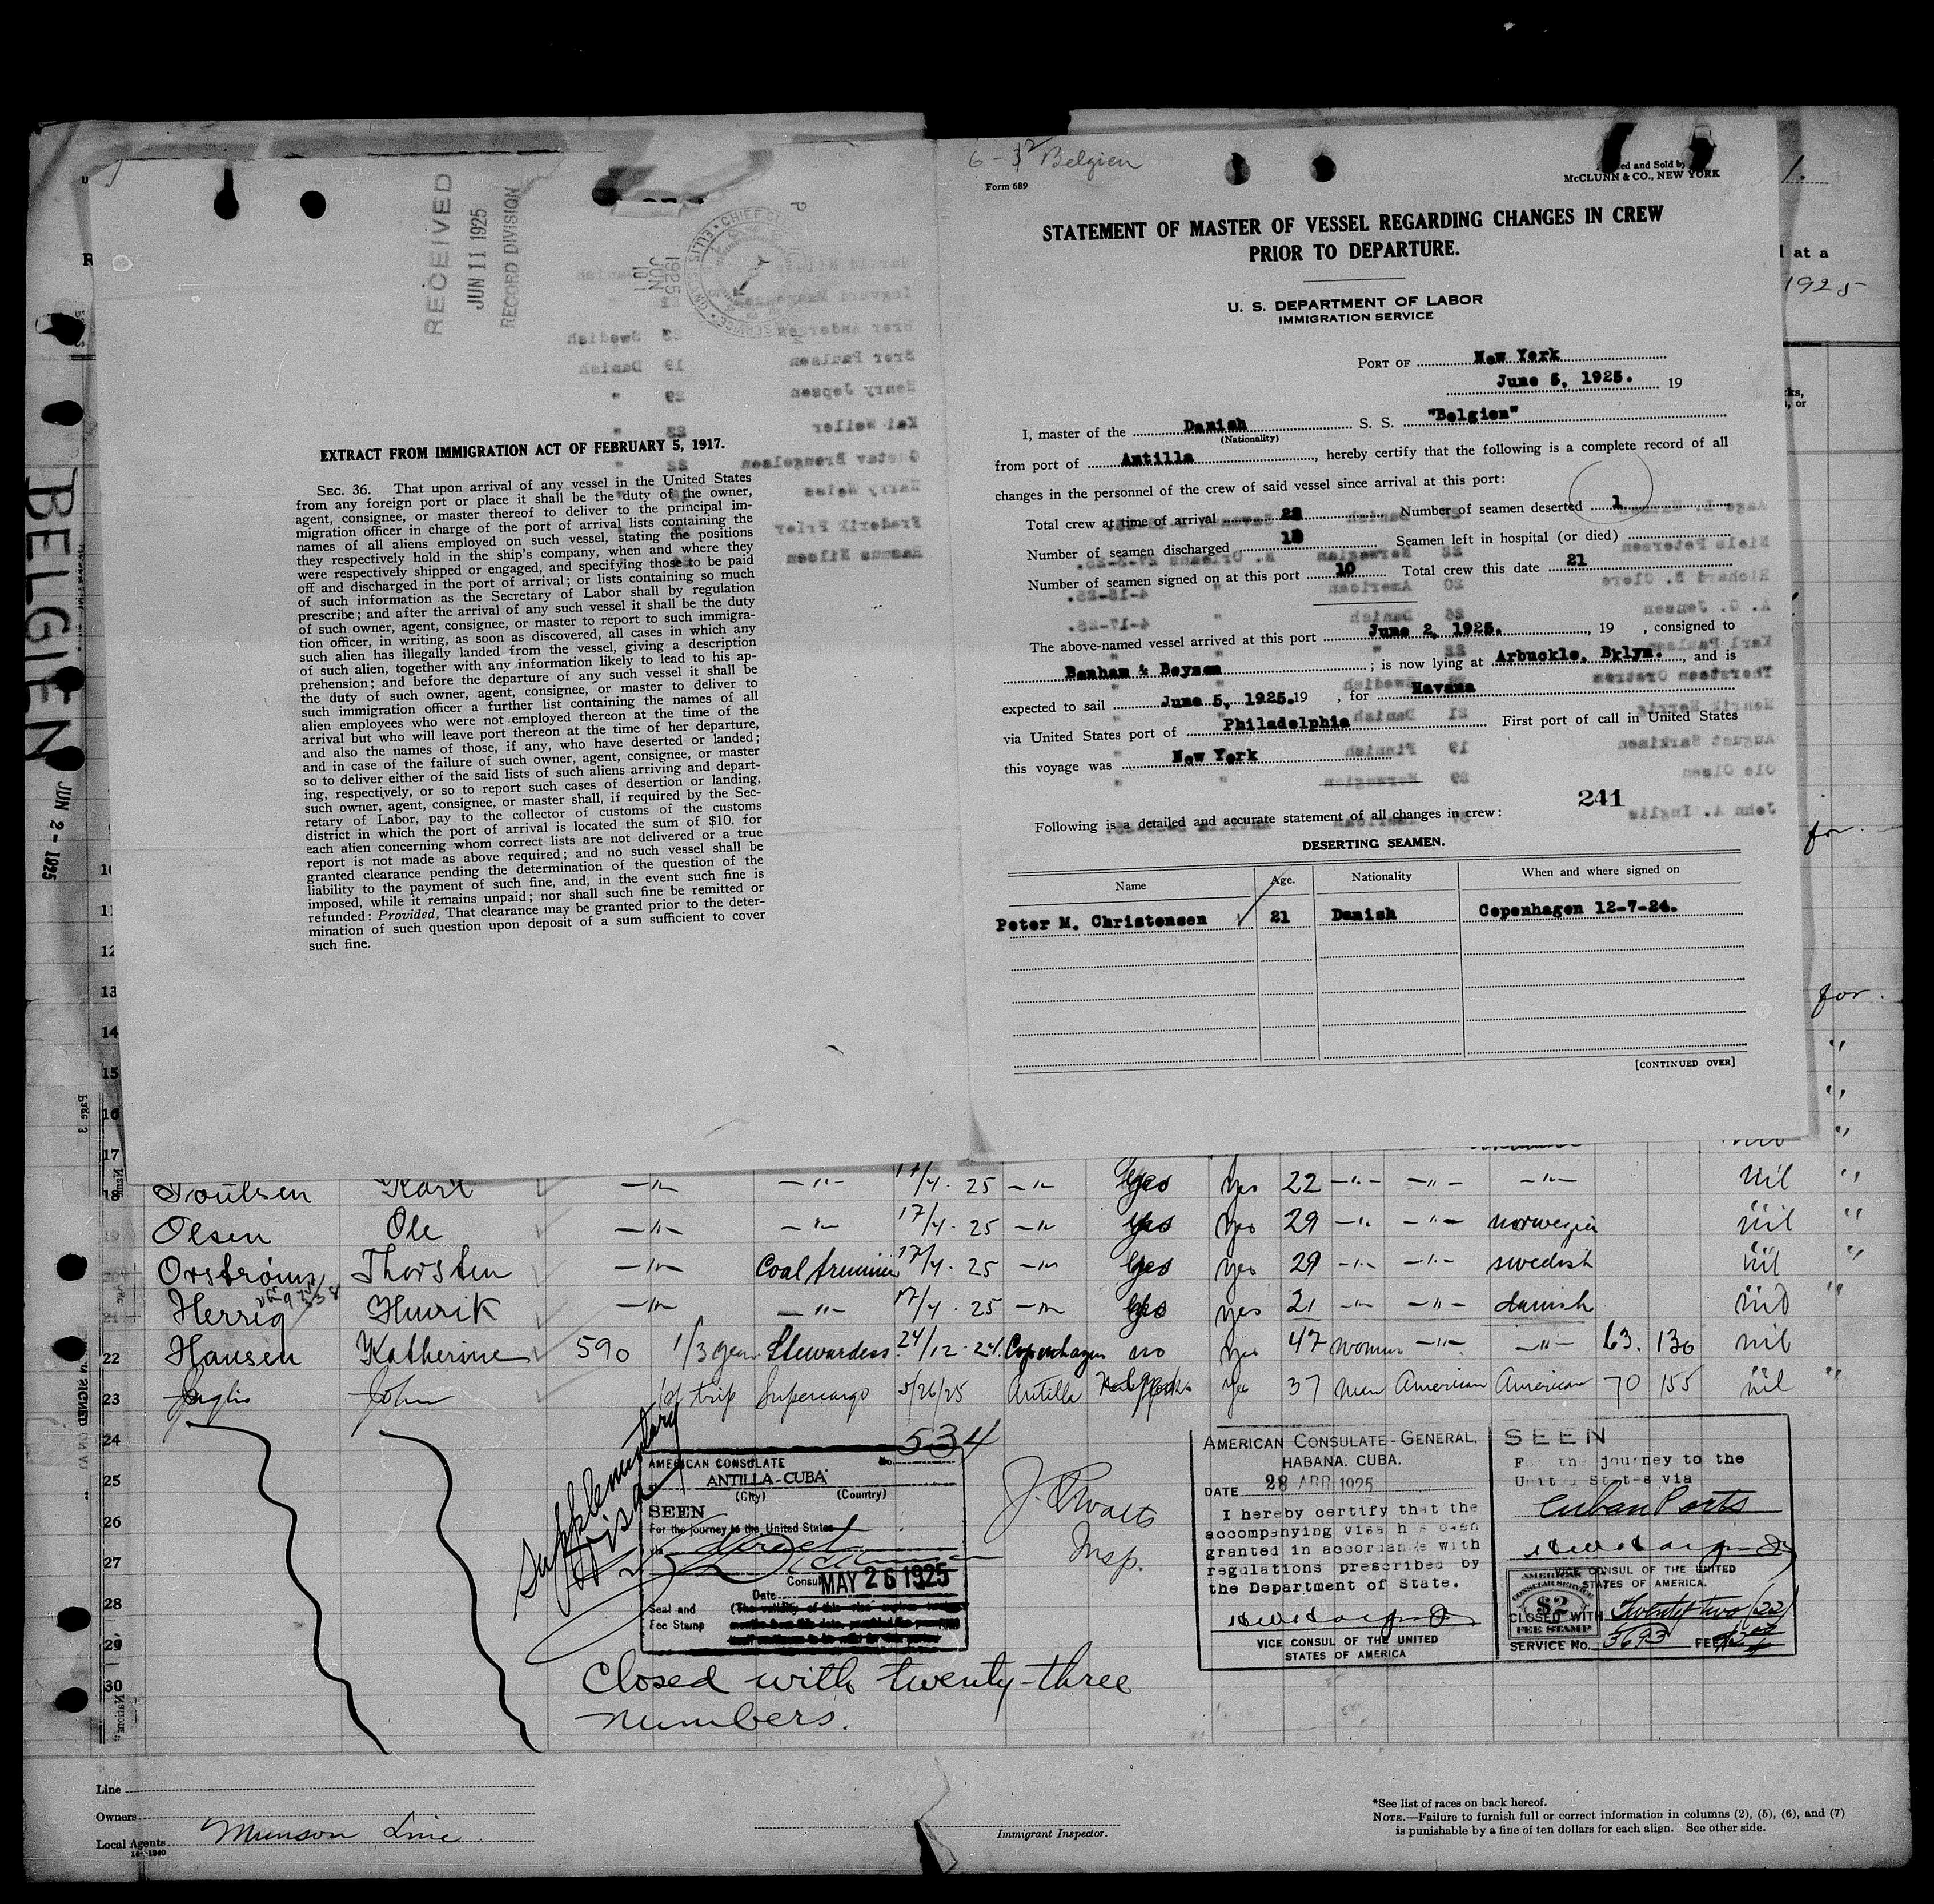 6-12 Belgien
Form 689
McCLUNN & CO., NEW YORK
STATEMENT OF MASTER OF VESSEL REGARDING CHANGES IN CREW
PRIOR TO DEPARTURE.
U. S. DEPARTMENT OF LABOR
IMMIGRATION SERVICE
PORT OF New York
June 5, 1925. 19
I, master of the Danish S. S. "Belgien"
(Nationality)
from port of Antilla, hereby certify that the following is a complete record of all
changes in the personnel of the crew of said vessel since arrival at this port:
Total crew at time of arrival 23 Number of seamen deserted 1
Number of seamen discharged Seamen left in hospital (or died)
Number of seamen signed on at this port 10 Total crew this date 21
The above-named vessel arrived at this port June 2, 1925. , 19 , consigned to
Benham & Boysen ; is now lying at Arbuckle, Bklyn. , and is
expected to sail June 5, 1925. 19 , for Havana
via United States port of Philadelphia First port of call in United States
this voyage was New York
241
Following is a detailed and accurate statement of all changes in crew:
DESERTING SEAMEN.
Name Age. Nationality When and where signed on
Peter M. Christensen 21 Danish Copenhagen 12-7-24.
[CONTINUED OVER]
RECEIVED
JUN 11 1925
RECORD DIVISION
EXTRACT FROM IMMIGRATION ACT OF FEBRUARY 5, 1917.
SEC. 36. That upon arrival of any vessel in the United States
from any foreign port or place it shall be the duty of the owner,
agent, consignee, or master thereof to deliver to the principal im-
migration officer in charge of the port of arrival lists containing the
names of all aliens employed on such vessel, stating the positions
they respectively hold in the ship's company, when and where they
were respectively shipped or engaged, and specifying those to be paid
off and discharged in the port of arrival; or lists containing so much
of such information as the Secretary of Labor shall by regulation
prescribe; and after the arrival of any such vessel it shall be the duty
of such owner, agent, consignee, or master to report to such immigra-
tion officer, in writing, as soon as discovered, all cases in which any
such alien has illegally landed from the vessel, giving a description
of such alien, together with any information likely to lead to his ap-
prehension; and before the departure of any such vessel it shall be
the duty of such owner, agent, consignee, or master to deliver to
such immigration officer a further list containing the names of all
alien employees who were not employed thereon at the time of the
arrival but who will leave port thereon at the time of her departure,
and also the names of those, if any, who have deserted or landed;
and in case of the failure of such owner, agent, consignee, or master
so to deliver either of the said lists of such aliens arriving and depart-
ing, respectively, or so to report such cases of desertion or landing,
such owner, agent, consignee, or master shall, if required by the Sec-
retary of Labor, pay to the collector of customs of the customs
district in which the port of arrival is located the sum of $10. for
each alien concerning whom correct lists are not delivered or a true
report is not made as above required; and no such vessel shall be
granted clearance pending the determination of the question of the
liability to the payment of such fine, and, in the event such fine is
imposed, while it remains unpaid; nor shall such fine be remitted or
refunded: Provided, That clearance may be granted prior to the deter-
mination of such question upon deposit of a sum sufficient to cover
such fine.
BELGIEN
JUN 2 - 1925
1925
18 Poulsen Karl 17/4. 25 Yes Yes 22 nil
19 Olsen Ole 17/4. 25 Yes Yes 29 norwegin nil
20 Orstrøm Thorsten Coal trimmer 17/4. 25 Yes Yes 29 swedish nil
21 Herrig Henrik 17/4. 25 Yes Yes 21 danish nil
22 Hansen Katherine 590 1/3 year Stewardess 24/12. 24 Copenhagen no Yes 47 woman 63. 130 nil
23 Inglis John 1st trip Supercargo 5/26/25 Antilla Yes 37 man American American 70 155 nil
24
25
26
27
28
29
30
Supplementary Visa
534
AMERICAN CONSULATE No
ANTILLA-CUBA
(City) (Country)
SEEN
For the journey to the United States
via direct
Consul
Date MAY 26 1925
Seal and
Fee Stamp
Closed with twenty-three
numbers.
Insp.
AMERICAN CONSULATE-GENERAL,
HABANA. CUBA.
DATE 28 APR 1925
I hereby certify that the
accompanying visa has been
granted in accordance with
regulations prescribed by
the Department of State.
VICE CONSUL OF THE UNITED
STATES OF AMERICA
SEEN
For the journey to the
United States via
Cuban Ports
VICE CONSUL OF THE UNITED
STATES OF AMERICA.
AMERICAN
CONSULAR SERVICE
$2
FEE STAMP
CLOSED WITH Twenty two (22)
SERVICE No. 3693 FEE
Line
Owners
Local Agents Munson Line
Immigrant Inspector.
*See list of races on back hereof.
NOTE.—Failure to furnish full or correct information in columns (2), (5), (6), and (7)
is punishable by a fine of ten dollars for each alien. See other side.